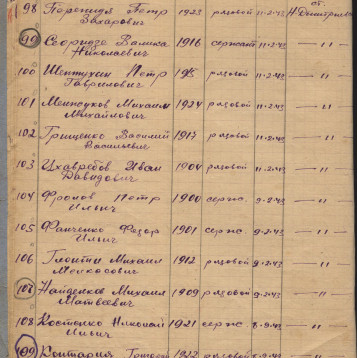 98 Петр 1923 рядовой 11-2-43 ст.
Захарович
99 Сефридзе Валика 1916 сержант 11-2-43 — 11 —
Николаевич
100 Шептухин Петр рядовой 11-2-43 — 11 —
Гаврилович
101 Михаил 1924 рядовой 11-2-43 — 11 —
Михайлович
102 Грищенко Василий 1917 рядовой 11-2-43 — 11 —
Васильевич
103 Иван 1904 рядовой 11-2-43 — 11 —
Давидович
104 Фролов Петр 1900 серж. 9-2-43 — 11 —
Ильич
105 Фанченко Федор 1901 серж. 9-2-43 — 11 —
Ильич
106 Михаил 1912 рядовой 9-2-43 — 11 —
107 Найденков Михаил 1909 рядовой 9-2-43 — 11 —
Матвеевич
108 Костолко Николай 1921 серж. — 11 —
Ильич
109